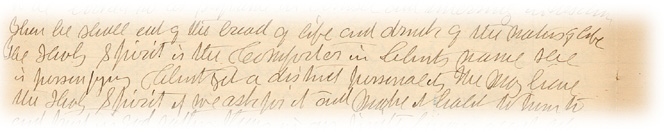 then he shall eat of the bread of life and drink of the waters of life
the Holy Spirit is the Comforter in Christs name He
is personifying Christ yet a distinct personality. We may have
the Holy Spirit if we ask for it and make it habit to turn to